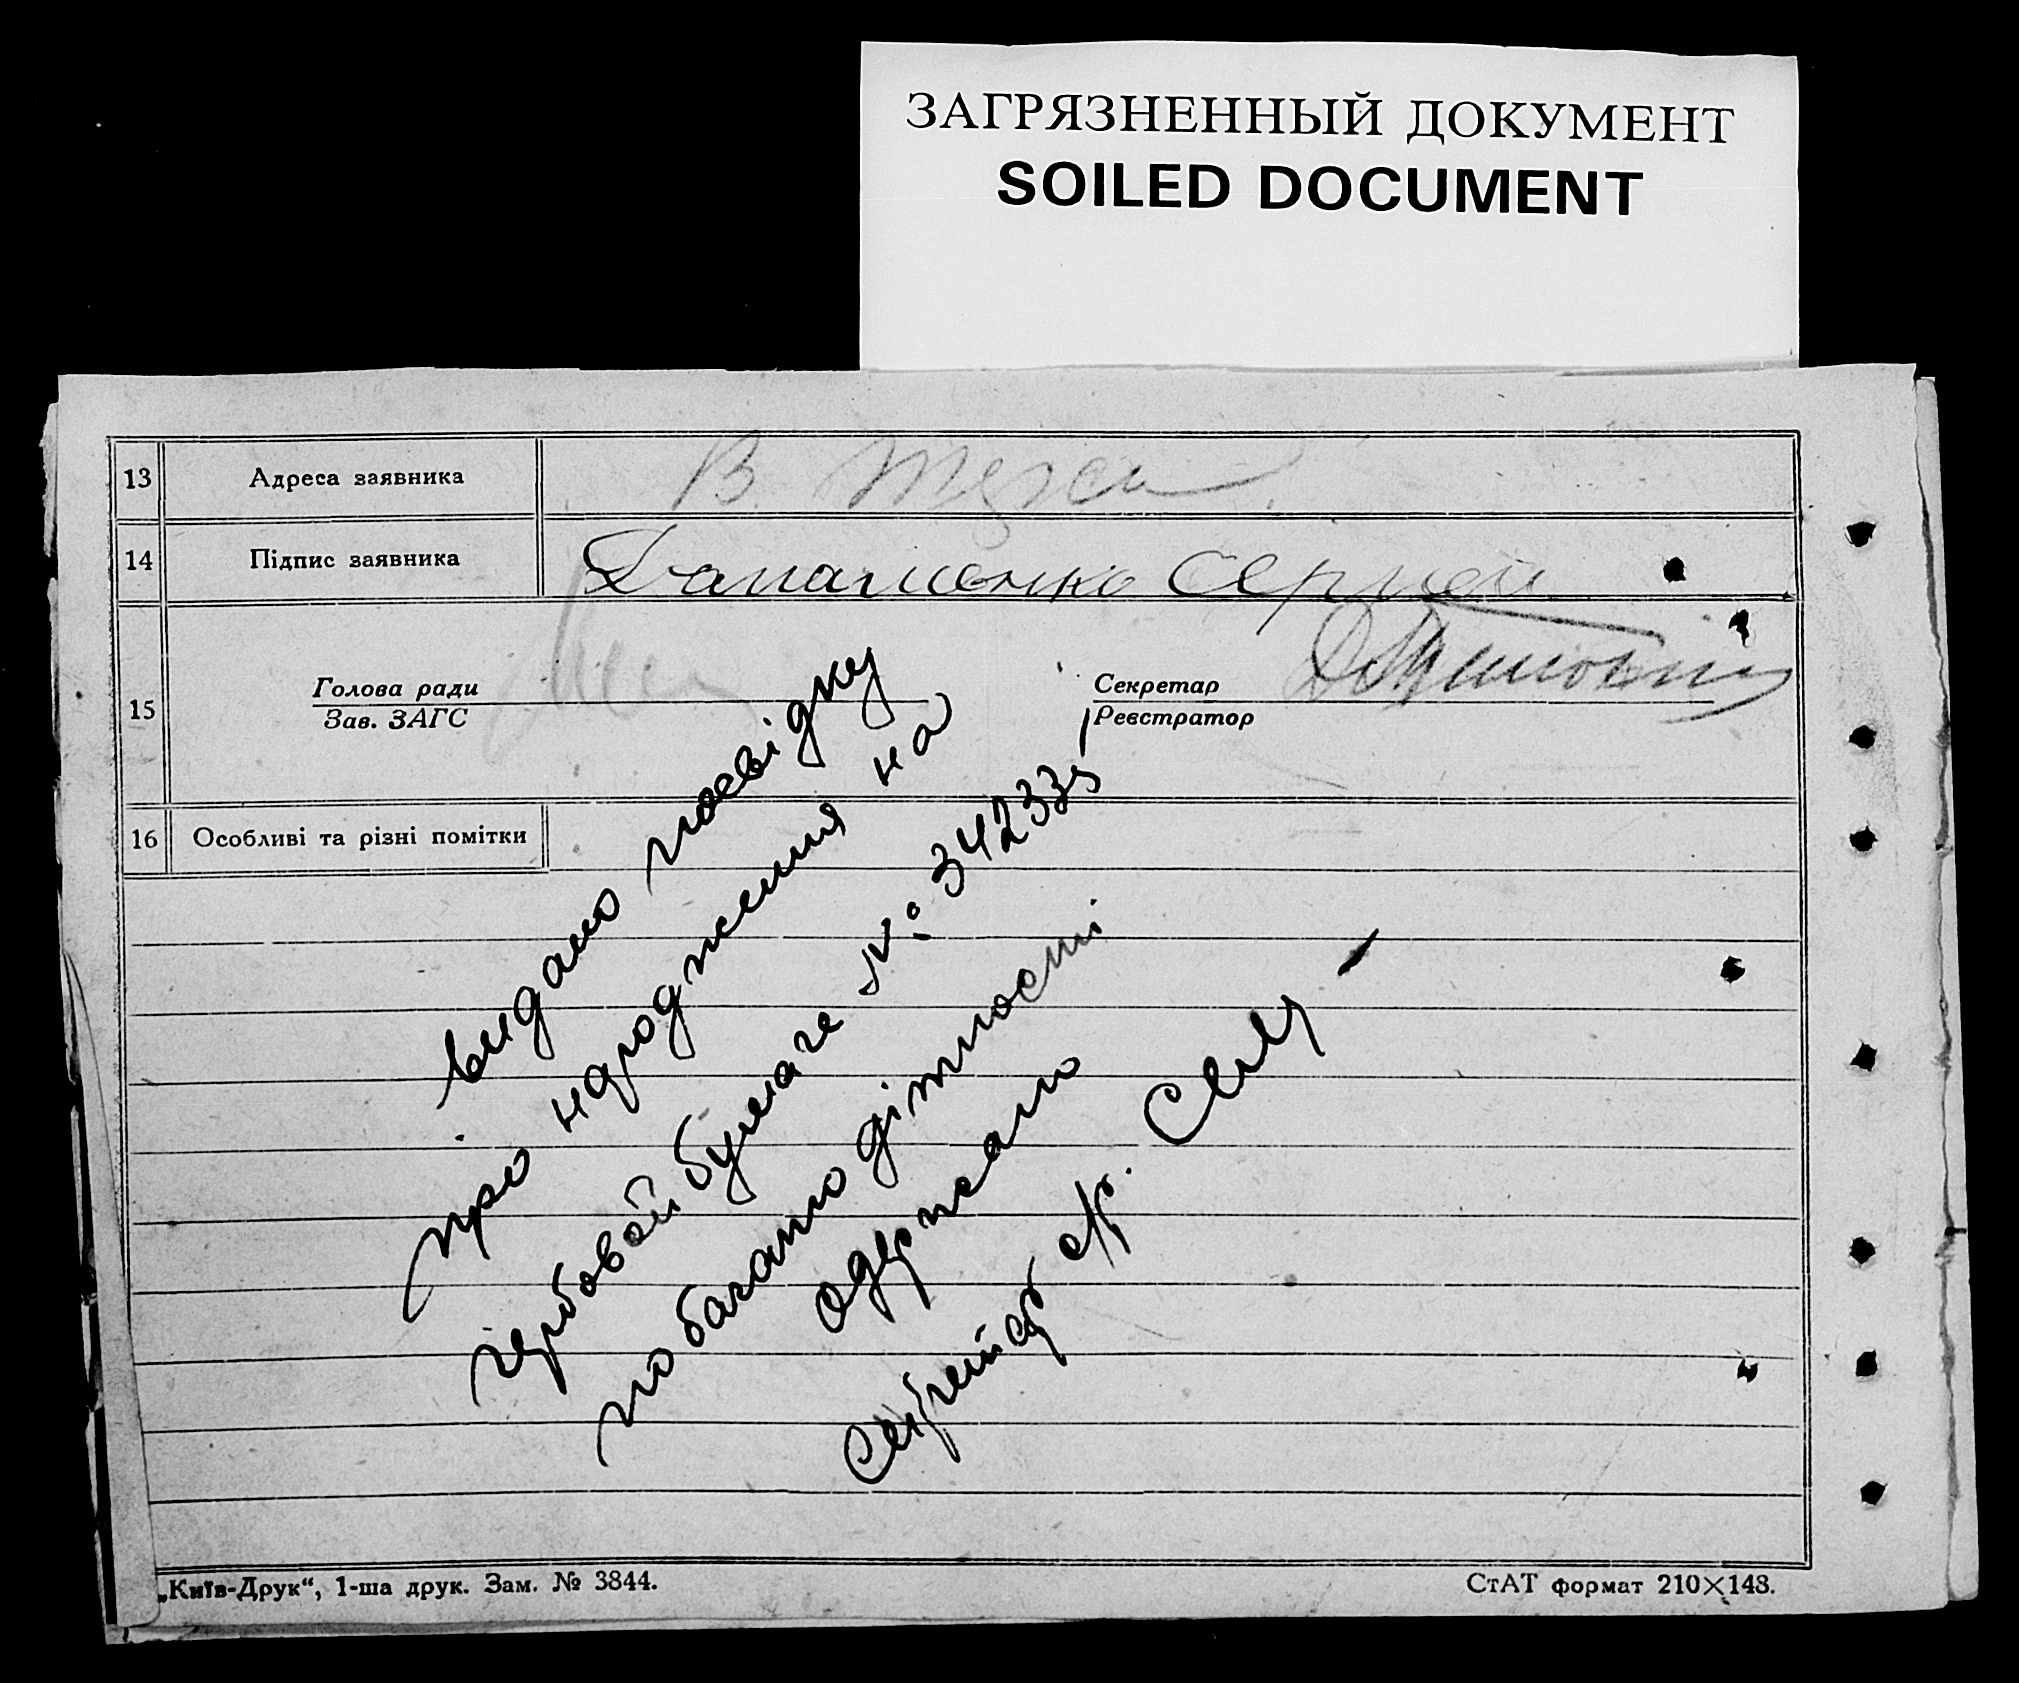 ЗАГРЯЗНЕННЫЙ ДОКУМЕНТ
SOILED DOCUMENT
13 Адреса заявника В.
14 Підпис заявника Сергей
15 Голова ради Секретар
Зав. ЗАГС Реєстратор
16 Особливі та різні помітки
видано посвідку
про народження на
гербовой бумаге № 342335
по багатодітности
одержано
Секретар с/р.
„Київ-Друк“, 1-ша друк. Зам. № 3844. СтАТ формат 210×148.